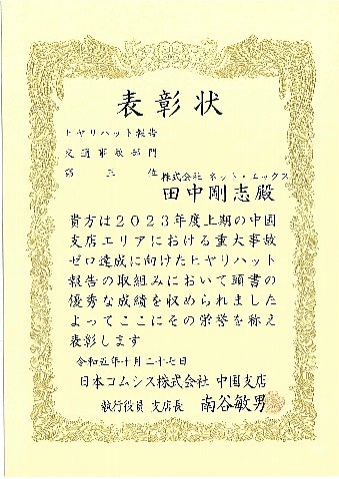 表彰状
ヒヤリハット報告
交通事故部門
第三位
株式会社 ネット・ムックス
田中剛志殿
貴方は2023年度上期の中国
支店エリアにおける重大事故
ゼロ達成に向けたヒヤリハット
報告の取組みにおいて頭書の
優秀な成績を収められました
よってここにその栄誉を称え
表彰します
令和五年十月二十七日
日本コムシス株式会社 中国支店
執行役員 支店長 南谷敏男